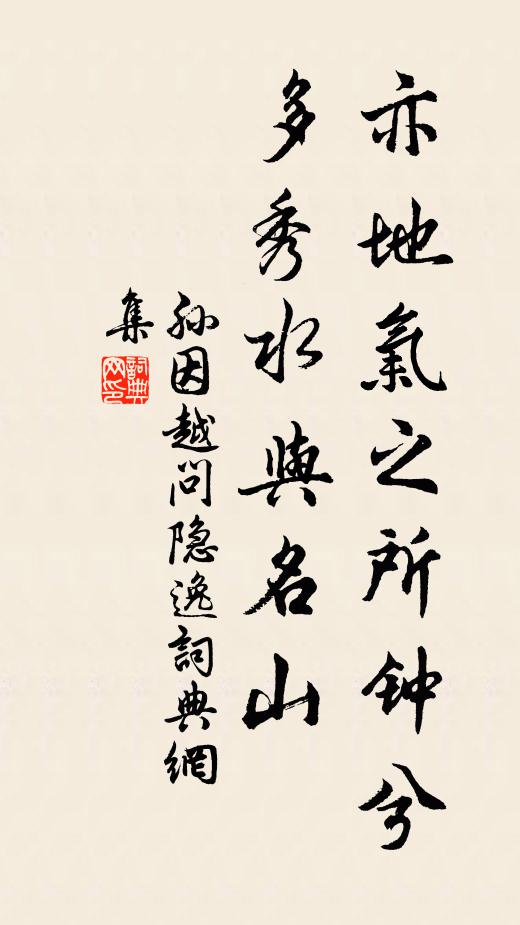 亦地氣之所钟兮
多秀水與名山
孙因越问隐逸詞典網
集
詞典网印